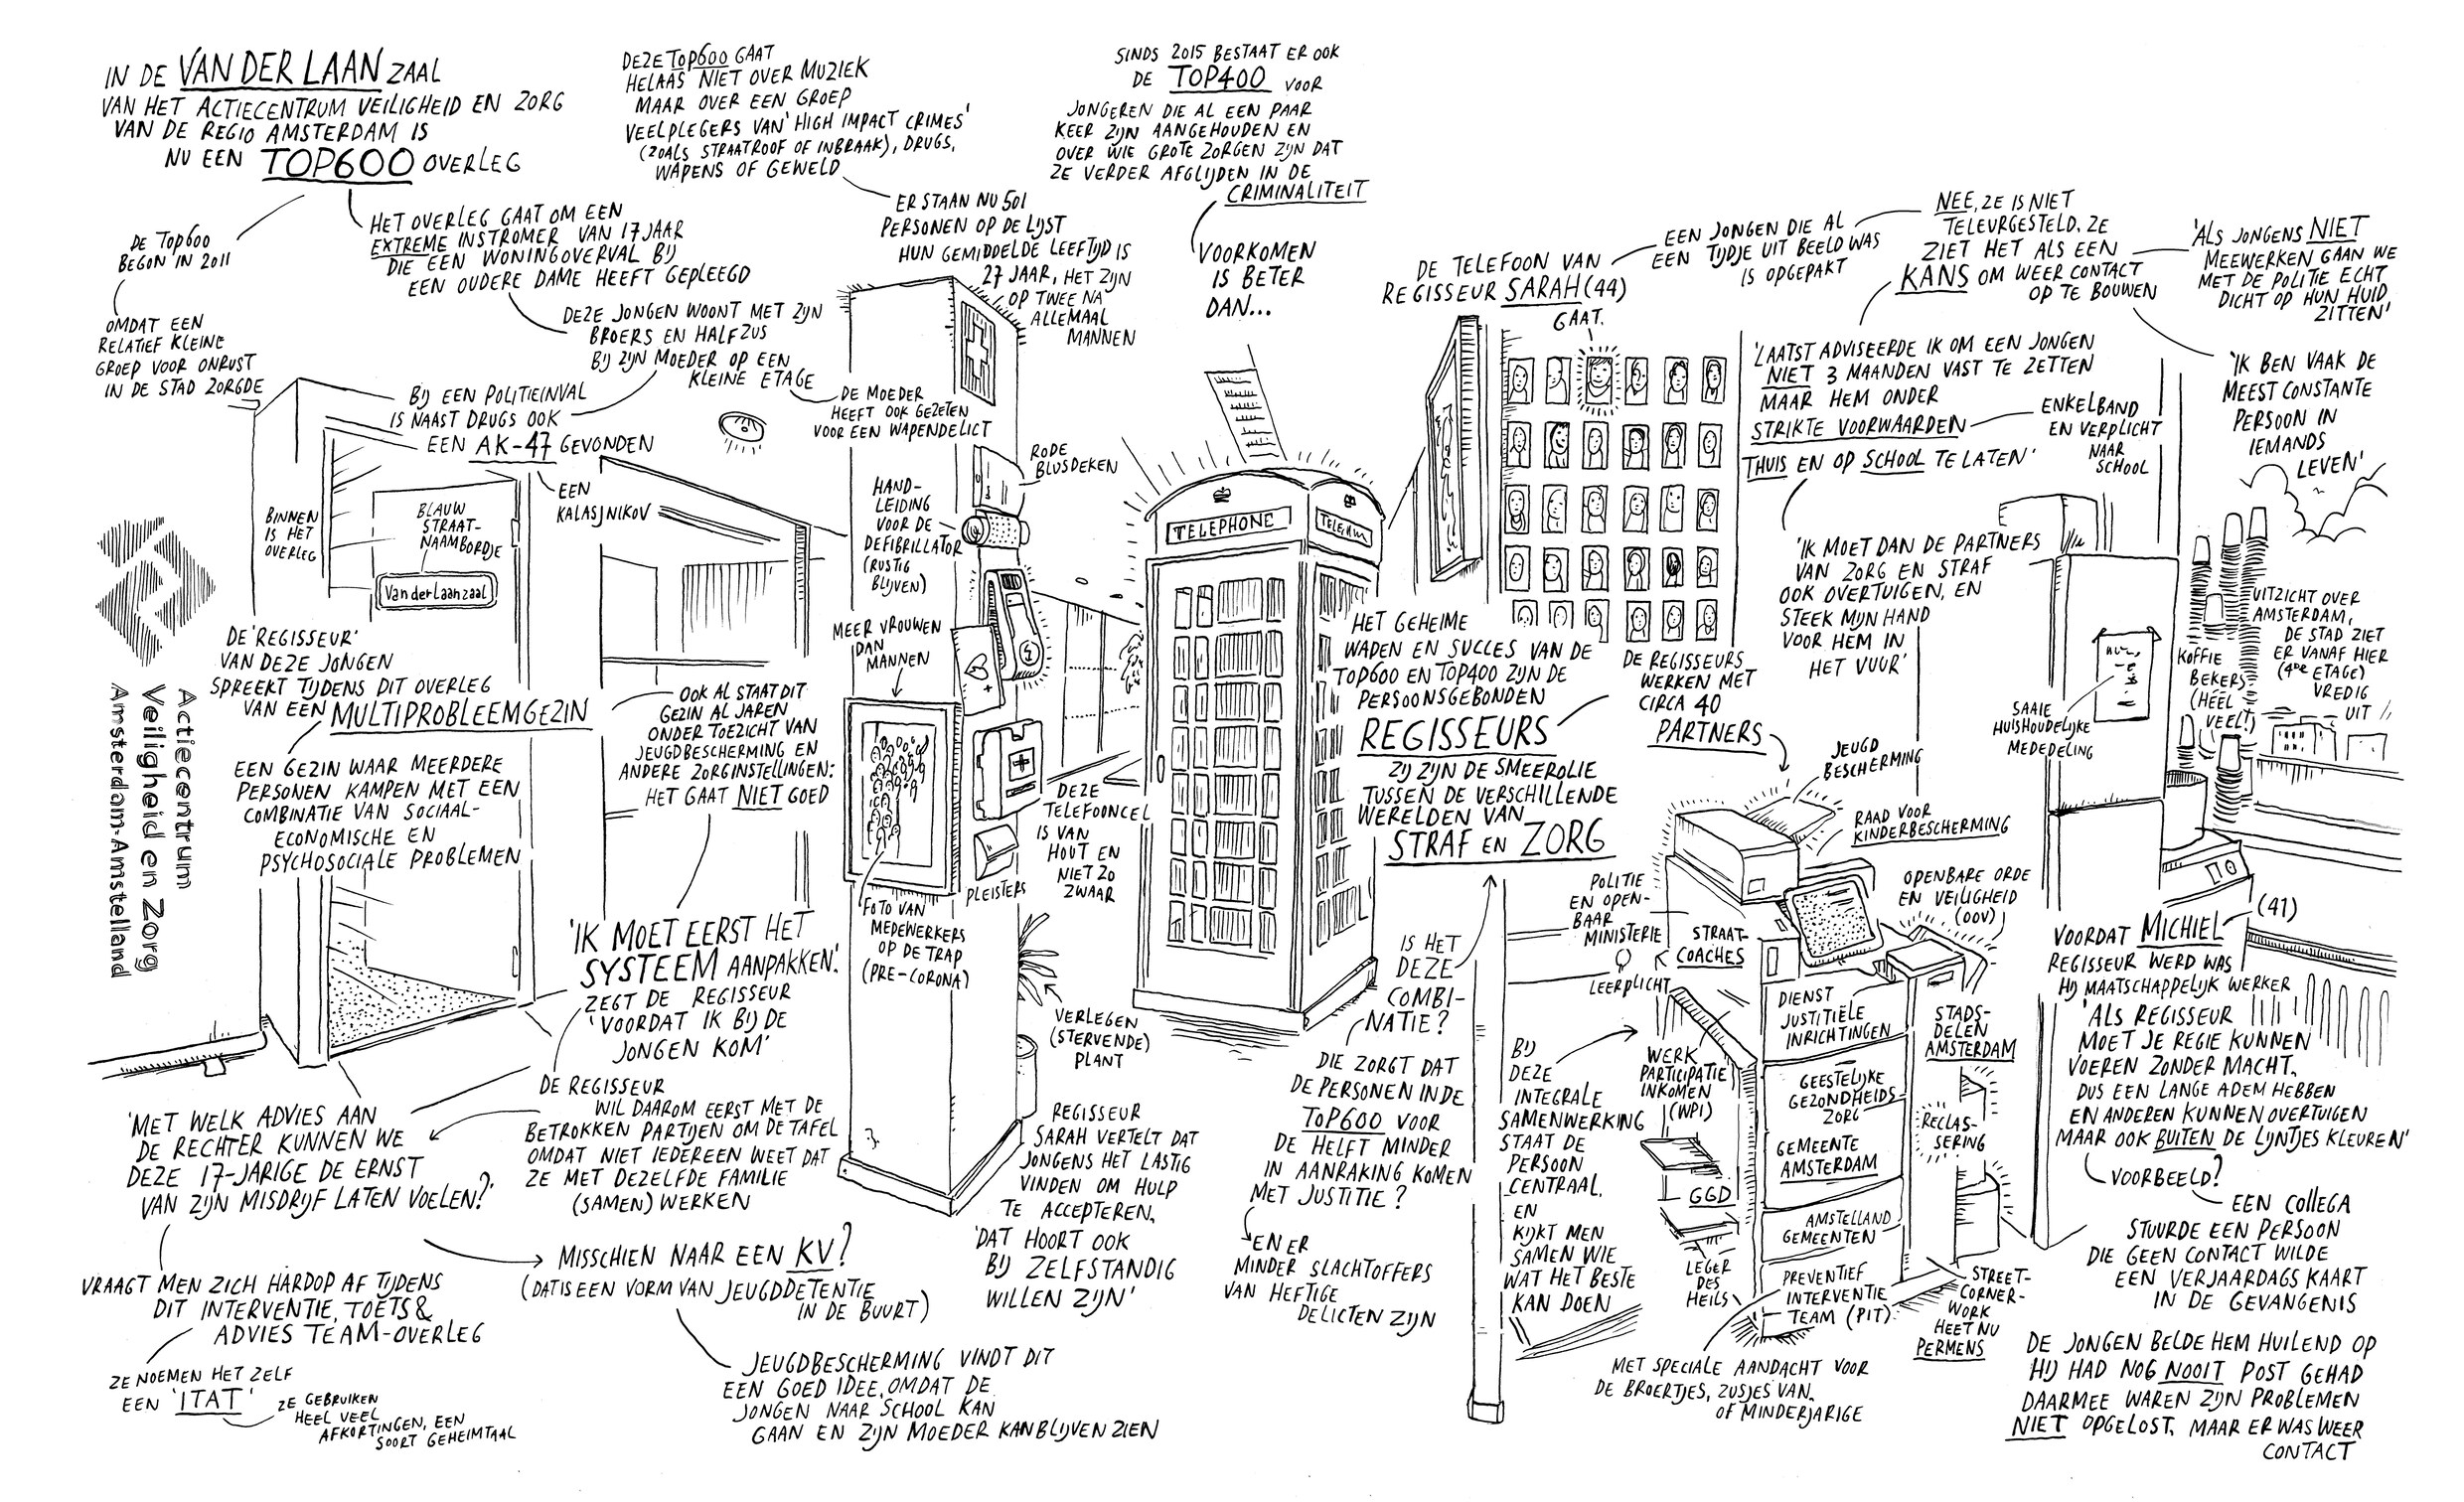 IN DE VAN DER LAAN ZAAL
VAN HET ACTIECENTRUM VEILIGHEID EN ZORG
VAN DE REGIO AMSTERDAM IS
NU EEN TOP600 OVERLEG
DE TOP600
BEGON IN 2011
OMDAT EEN
RELATIEF KLEINE
GROEP VOOR ONRUST
IN DE STAD ZORGDE
HET OVERLEG GAAT OM EEN
EXTREME INSTROMER VAN 17 JAAR
DIE EEN WONINGOVERVAL BIJ
EEN OUDERE DAME HEEFT GEPLEEGD
DEZE JONGEN WOONT MET ZIJN
BROERS EN HALFZUS
BIJ ZIJN MOEDER OP EEN
KLEINE ETAGE
DE MOEDER
HEEFT OOK GEZETEN
VOOR EEN WAPENDELICT
BIJ EEN POLITIEINVAL
IS NAAST DRUGS OOK
EEN AK-47 GEVONDEN
EEN
KALASJNIKOV
BINNEN
IS HET
OVERLEG
BLAUW
STRAAT-
NAAMBORDJE
Van der Laanzaal
Actiecentrum
Veiligheid en Zorg
Amsterdam-Amstelland
DE 'REGISSEUR'
VAN DEZE JONGEN
SPREEKT TIJDENS DIT OVERLEG
VAN EEN MULTIPROBLEEMGEZIN
EEN GEZIN WAAR MEERDERE
PERSONEN KAMPEN MET EEN
COMBINATIE VAN SOCIAAL-
ECONOMISCHE EN
PSYCHOSOCIALE PROBLEMEN
OOK AL STAAT DIT
GEZIN AL JAREN
ONDER TOEZICHT VAN
JEUGDBESCHERMING EN
ANDERE ZORGINSTELLINGEN:
HET GAAT NIET GOED
'IK MOET EERST HET
SYSTEEM AANPAKKEN'
ZEGT DE REGISSEUR
'VOORDAT IK BIJ DE
JONGEN KOM'
DE REGISSEUR
WIL DAAROM EERST MET DE
BETROKKEN PARTIJEN OM DE TAFEL
OMDAT NIET IEDEREEN WEET DAT
ZE MET DEZELFDE FAMILIE
(SAMEN) WERKEN
'MET WELK ADVIES AAN
DE RECHTER KUNNEN WE
DEZE 17-JARIGE DE ERNST
VAN ZIJN MISDRIJF LATEN VOELEN?'
VRAAGT MEN ZICH HARDOP AF TIJDENS
DIT INTERVENTIE, TOETS &
ADVIES TEAM-OVERLEG
ZE NOEMEN HET ZELF
EEN 'ITAT'
ZE GEBRUIKEN
HEEL VEEL
AFKORTINGEN, EEN
SOORT GEHEIMTAAL
MISSCHIEN NAAR EEN KV?
(DAT IS EEN VORM VAN JEUGDDETENTIE
IN DE BUURT)
JEUGDBESCHERMING VINDT DIT
EEN GOED IDEE, OMDAT DE
JONGEN NAAR SCHOOL KAN
GAAN EN ZIJN MOEDER KAN BLIJVEN ZIEN
DEZE TOP600 GAAT
HELAAS NIET OVER MUZIEK
MAAR OVER EEN GROEP
VEELPLEGERS VAN 'HIGH IMPACT CRIMES'
(ZOALS STRAATROOF OF INBRAAK), DRUGS,
WAPENS OF GEWELD
ER STAAN NU 501
PERSONEN OP DE LIJST
HUN GEMIDDELDE LEEFTIJD IS
27 JAAR, HET ZIJN
OP TWEE NA
ALLEMAAL
MANNEN
RODE
BLUSDEKEN
HAND-
LEIDING
VOOR DE
DEFIBRILLATOR
(RUSTIG
BLIJVEN)
MEER VROUWEN
DAN
MANNEN
FOTO VAN
MEDEWERKERS
OP DE TRAP
(PRE-CORONA)
PLEISTERS
DEZE
TELEFOONCEL
IS VAN
HOUT EN
NIET ZO
ZWAAR
VERLEGEN
(STERVENDE)
PLANT
REGISSEUR
SARAH VERTELT DAT
JONGENS HET LASTIG
VINDEN OM HULP
TE ACCEPTEREN,
'DAT HOORT OOK
BIJ ZELFSTANDIG
WILLEN ZIJN'
SINDS 2015 BESTAAT ER OOK
DE TOP400 VOOR
JONGEREN DIE AL EEN PAAR
KEER ZIJN AANGEHOUDEN EN
OVER WIE GROTE ZORGEN ZIJN DAT
ZE VERDER AFGLIJDEN IN DE
CRIMINALITEIT
VOORKOMEN
IS BETER
DAN...
TELEPHONE
DE TELEFOON VAN
REGISSEUR SARAH (44)
GAAT.
EEN JONGEN DIE AL
EEN TIJDJE UIT BEELD WAS
IS OPGEPAKT
NEE, ZE IS NIET
TELEURGESTELD, ZE
ZIET HET ALS EEN
KANS OM WEER CONTACT
OP TE BOUWEN
'ALS JONGENS NIET
MEEWERKEN GAAN WE
MET DE POLITIE ECHT
DICHT OP HUN HUID
ZITTEN'
'IK BEN VAAK DE
MEEST CONSTANTE
PERSOON IN
IEMANDS
LEVEN'
'LAATST ADVISEERDE IK OM EEN JONGEN
NIET 3 MAANDEN VAST TE ZETTEN
MAAR HEM ONDER
STRIKTE VOORWAARDEN
THUIS EN OP SCHOOL TE LATEN'
ENKELBAND
EN VERPLICHT
NAAR
SCHOOL
'IK MOET DAN DE PARTNERS
VAN ZORG EN STRAF
OOK OVERTUIGEN, EN
STEEK MIJN HAND
VOOR HEM IN
HET VUUR'
HET GEHEIME
WAPEN EN SUCCES VAN DE
TOP600 EN TOP400 ZIJN DE
PERSOONSGEBONDEN
REGISSEURS
ZIJ ZIJN DE SMEEROLIE
TUSSEN DE VERSCHILLENDE
WERELDEN VAN
STRAF EN ZORG
IS HET
DEZE
COMBI-
NATIE?
DIE ZORGT DAT
DE PERSONEN IN DE
TOP600 VOOR
DE HELFT MINDER
IN AANRAKING KOMEN
MET JUSTITIE?
EN ER
MINDER SLACHTOFFERS
VAN HEFTIGE
DELICTEN ZIJN
DE REGISSEURS
WERKEN MET
CIRCA 40
PARTNERS
JEUGD
BESCHERMING
RAAD VOOR
KINDERBESCHERMING
OPENBARE ORDE
EN VEILIGHEID
(OOV)
POLITIE
EN OPEN-
BAAR
MINISTERIE
STRAAT-
COACHES
LEERPLICHT
BIJ
DEZE
INTEGRALE
SAMENWERKING
STAAT DE
PERSOON
CENTRAAL.
EN
KIJKT MEN
SAMEN WIE
WAT HET BESTE
KAN DOEN
WERK
PARTICIPATIE
INKOMEN
(WPI)
GGD
LEGER
DES
HEILS
DIENST
JUSTITIËLE
INRICHTINGEN
GEESTELIJKE
GEZONDHEIDS
ZORG
GEMEENTE
AMSTERDAM
AMSTELLAND
GEMEENTEN
PREVENTIEF
INTERVENTIE
TEAM (PIT)
MET SPECIALE AANDACHT VOOR
DE BROERTJES, ZUSJES VAN,
OF MINDERJARIGE
STADS-
DELEN
AMSTERDAM
RECLAS-
SERING
STREET-
CORNER-
WORK
HEET NU
PERMENS
SAAIE
HUISHOUDELIJKE
MEDEDELING
KOFFIE
BEKERS
(HÉÉL
VEEL)
UITZICHT OVER
AMSTERDAM,
DE STAD ZIET
ER VANAF HIER
(4DE ETAGE)
VREDIG
UIT
VOORDAT MICHIEL (41)
REGISSEUR WERD WAS
HIJ MAATSCHAPPELIJK WERKER
'ALS REGISSEUR
MOET JE REGIE KUNNEN
VOEREN ZONDER MACHT.
DUS EEN LANGE ADEM HEBBEN
EN ANDEREN KUNNEN OVERTUIGEN
MAAR OOK BUITEN DE LIJNTJES KLEUREN'
VOORBEELD?
EEN COLLEGA
STUURDE EEN PERSOON
DIE GEEN CONTACT WILDE
EEN VERJAARDAGS KAART
IN DE GEVANGENIS
DE JONGEN BELDE HEM HUILEND OP
HIJ HAD NOG NOOIT POST GEHAD
DAARMEE WAREN ZIJN PROBLEMEN
NIET OPGELOST, MAAR ER WAS WEER
CONTACT